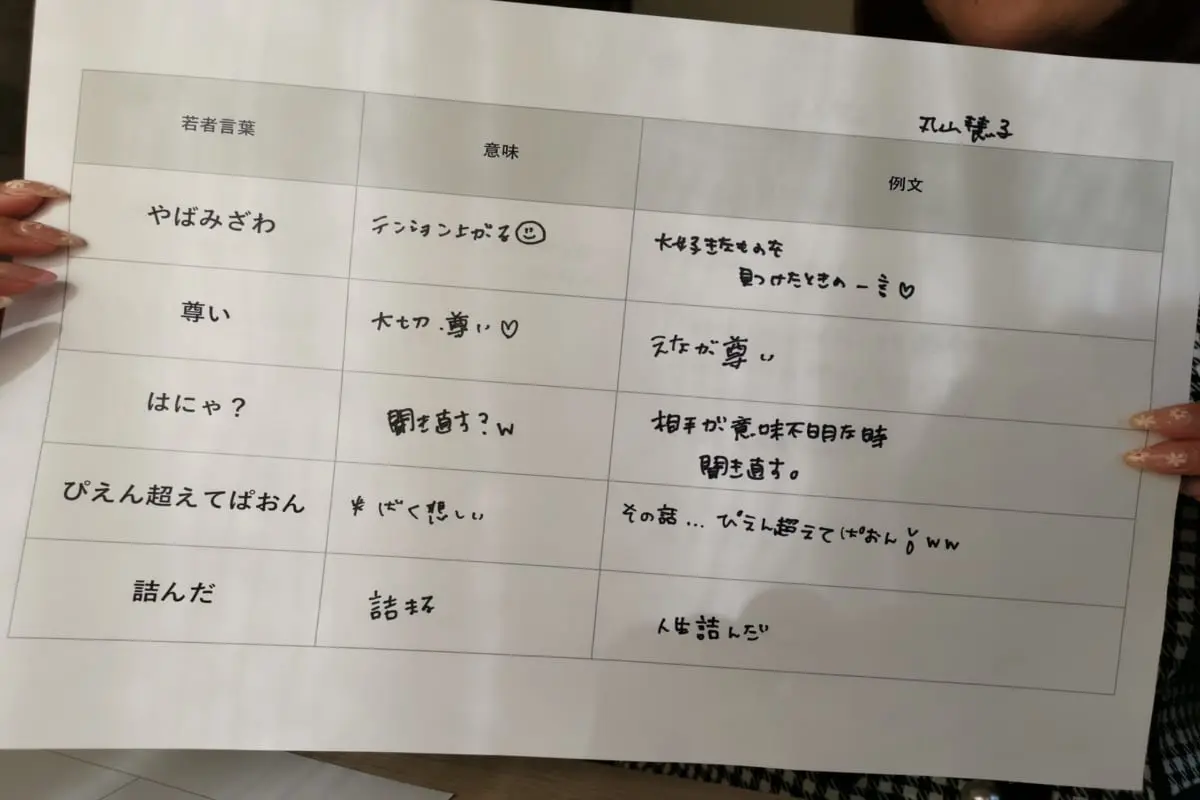 丸山穂子
若者言葉 意味 例文
やばみざわ テンション上がる☺ 大好きなものを
見つけたときの一言♡
尊い 大切.尊い♡ えなが尊い
はにゃ? 聞き直す?w 相手が意味不明な時
聞き直す。
ぴえん超えてぱおん *ばく悲しい その話... ぴえん超えてぱおん ww
詰んだ 詰まる 人生詰んだ